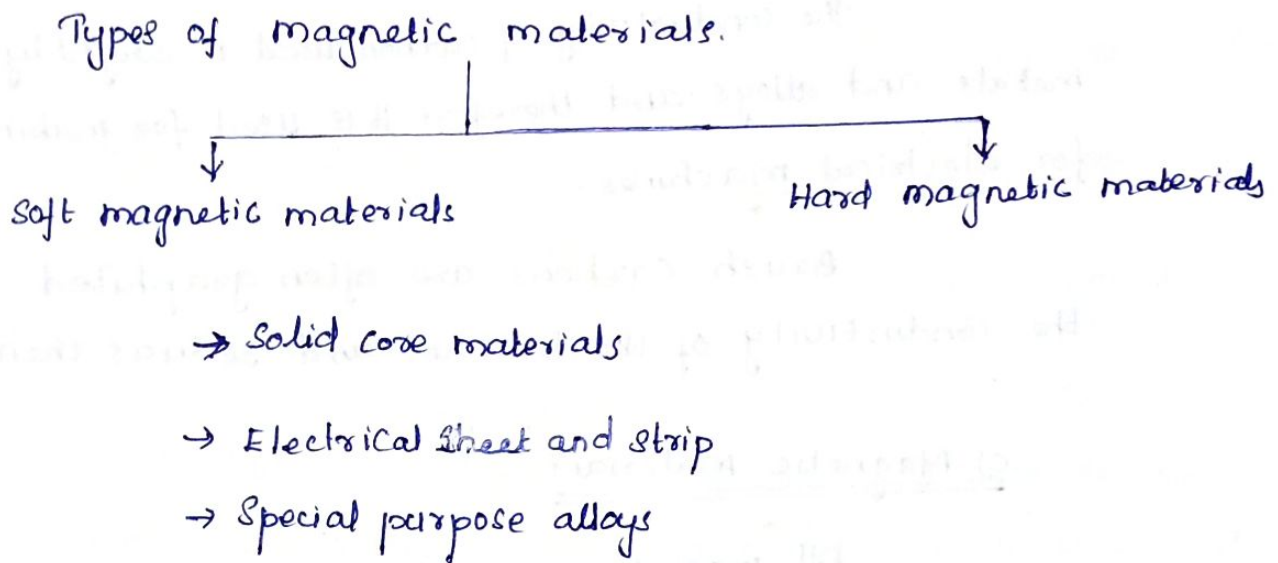 Types of magnetic materials.
Soft magnetic materials
Hard magnetic materials
→ Solid core materials
→ Electrical Sheet and strip
→ Special purpose alloys